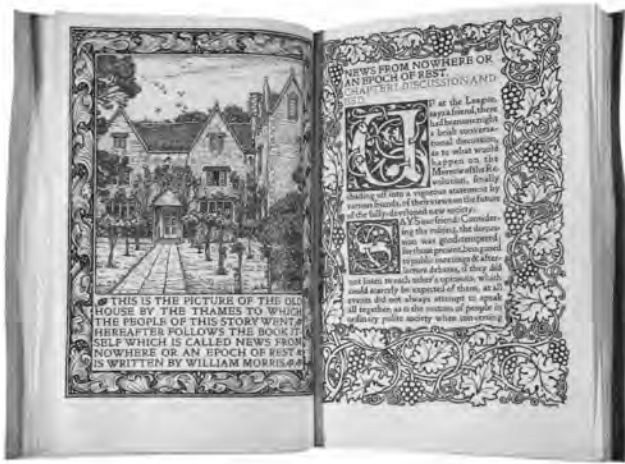 THIS IS THE PICTURE OF THE OLD
HOUSE BY THE THAMES TO WHICH
THE PEOPLE OF THIS STORY WENT
HEREAFTER FOLLOWS THE BOOK IT
SELF WHICH IS CALLED NEWS FROM
NOWHERE OR AN EPOCH OF REST &
IS WRITTEN BY WILLIAM MORRIS
NEWS FROM NOWHERE OR
AN EPOCH OF REST.
CHAPTER I. DISCUSSION AND
BED.
UP at the League,
says a friend, there
had been one night
a brisk conversa-
tional discussion,
as to what would
happen on the
Morrow of the Re-
volution, finally
shading off into a vigorous statement by
various friends, of their views on the future
of the fully-developed new society.
SAYS our friend: Consider-
ing the subject, the discus-
sion was good-tempered;
for those present, being used
to public meetings & after-
lecture debates, if they did
not listen to each other's opinions, which
could scarcely be expected of them, at all
events did not always attempt to speak
all together, as is the custom of people in
ordinary polite society when conversing